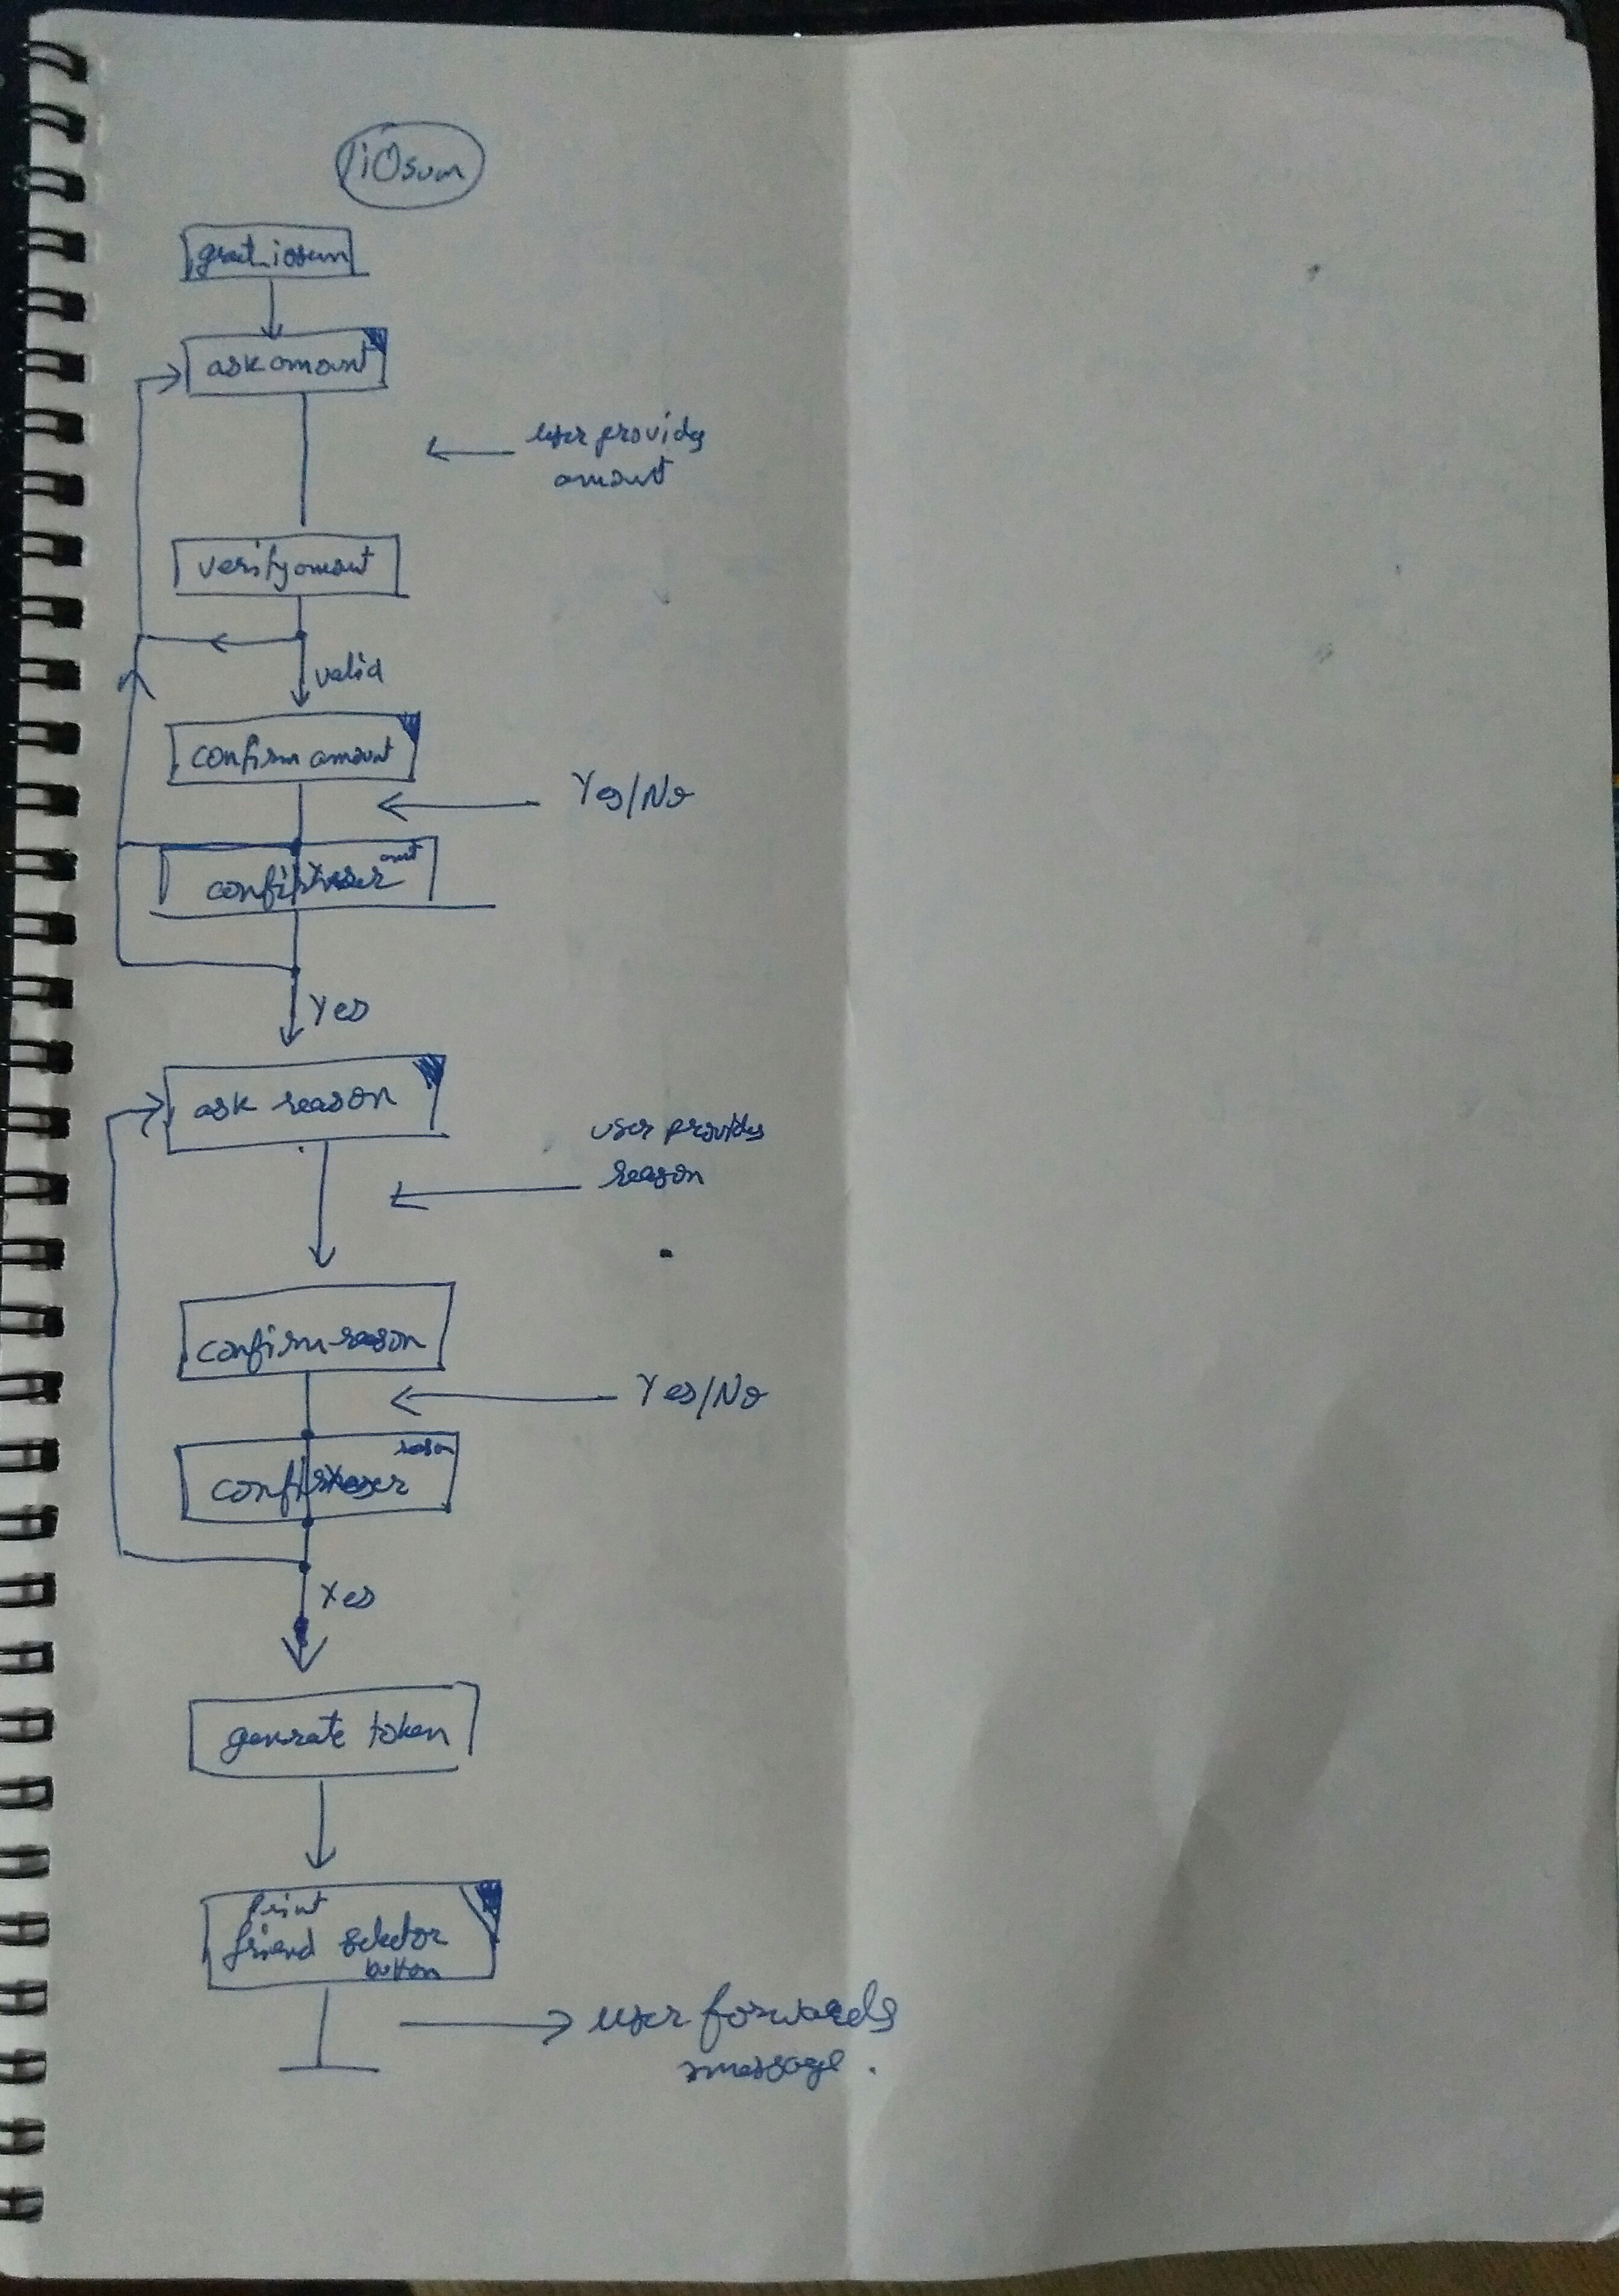 iOsum
greet_iosum
ask amount
user provides
amount
verify amount
valid
confirm amount
Yes/No
amt
Yes
ask reason
user provides
reason
confirm reason
Yes/No
reason
Yes
generate token
Print
friend selector
button
user forwards
message.